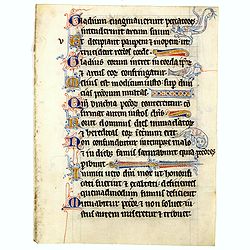 Gladium euaginauerunt peccatores
intenderunt arcum suum
Ut decipiant pauperem et inopem ut
trucident rectos corde
Gladius eorum intret in corda ipsor
et arcus eor confringatur
Melius est modicum iusto sup diui
cias peccatorum multas
Qm brachia peccor conterentur con
firmat autem iustos dns
Nouit dominus dies immaculator
et hereditas eor in eternum erit
Non confundentur in tempore malo
et in dieb famis saturabuntur quia pcores
pibunt
Inimici uero dni mox ut honorifi
cati fuerint et exaltati deficientes
quemadmodum fumus deficient
Mutuabitur peccor et non soluet iu
stus autem miseretur et tribuet